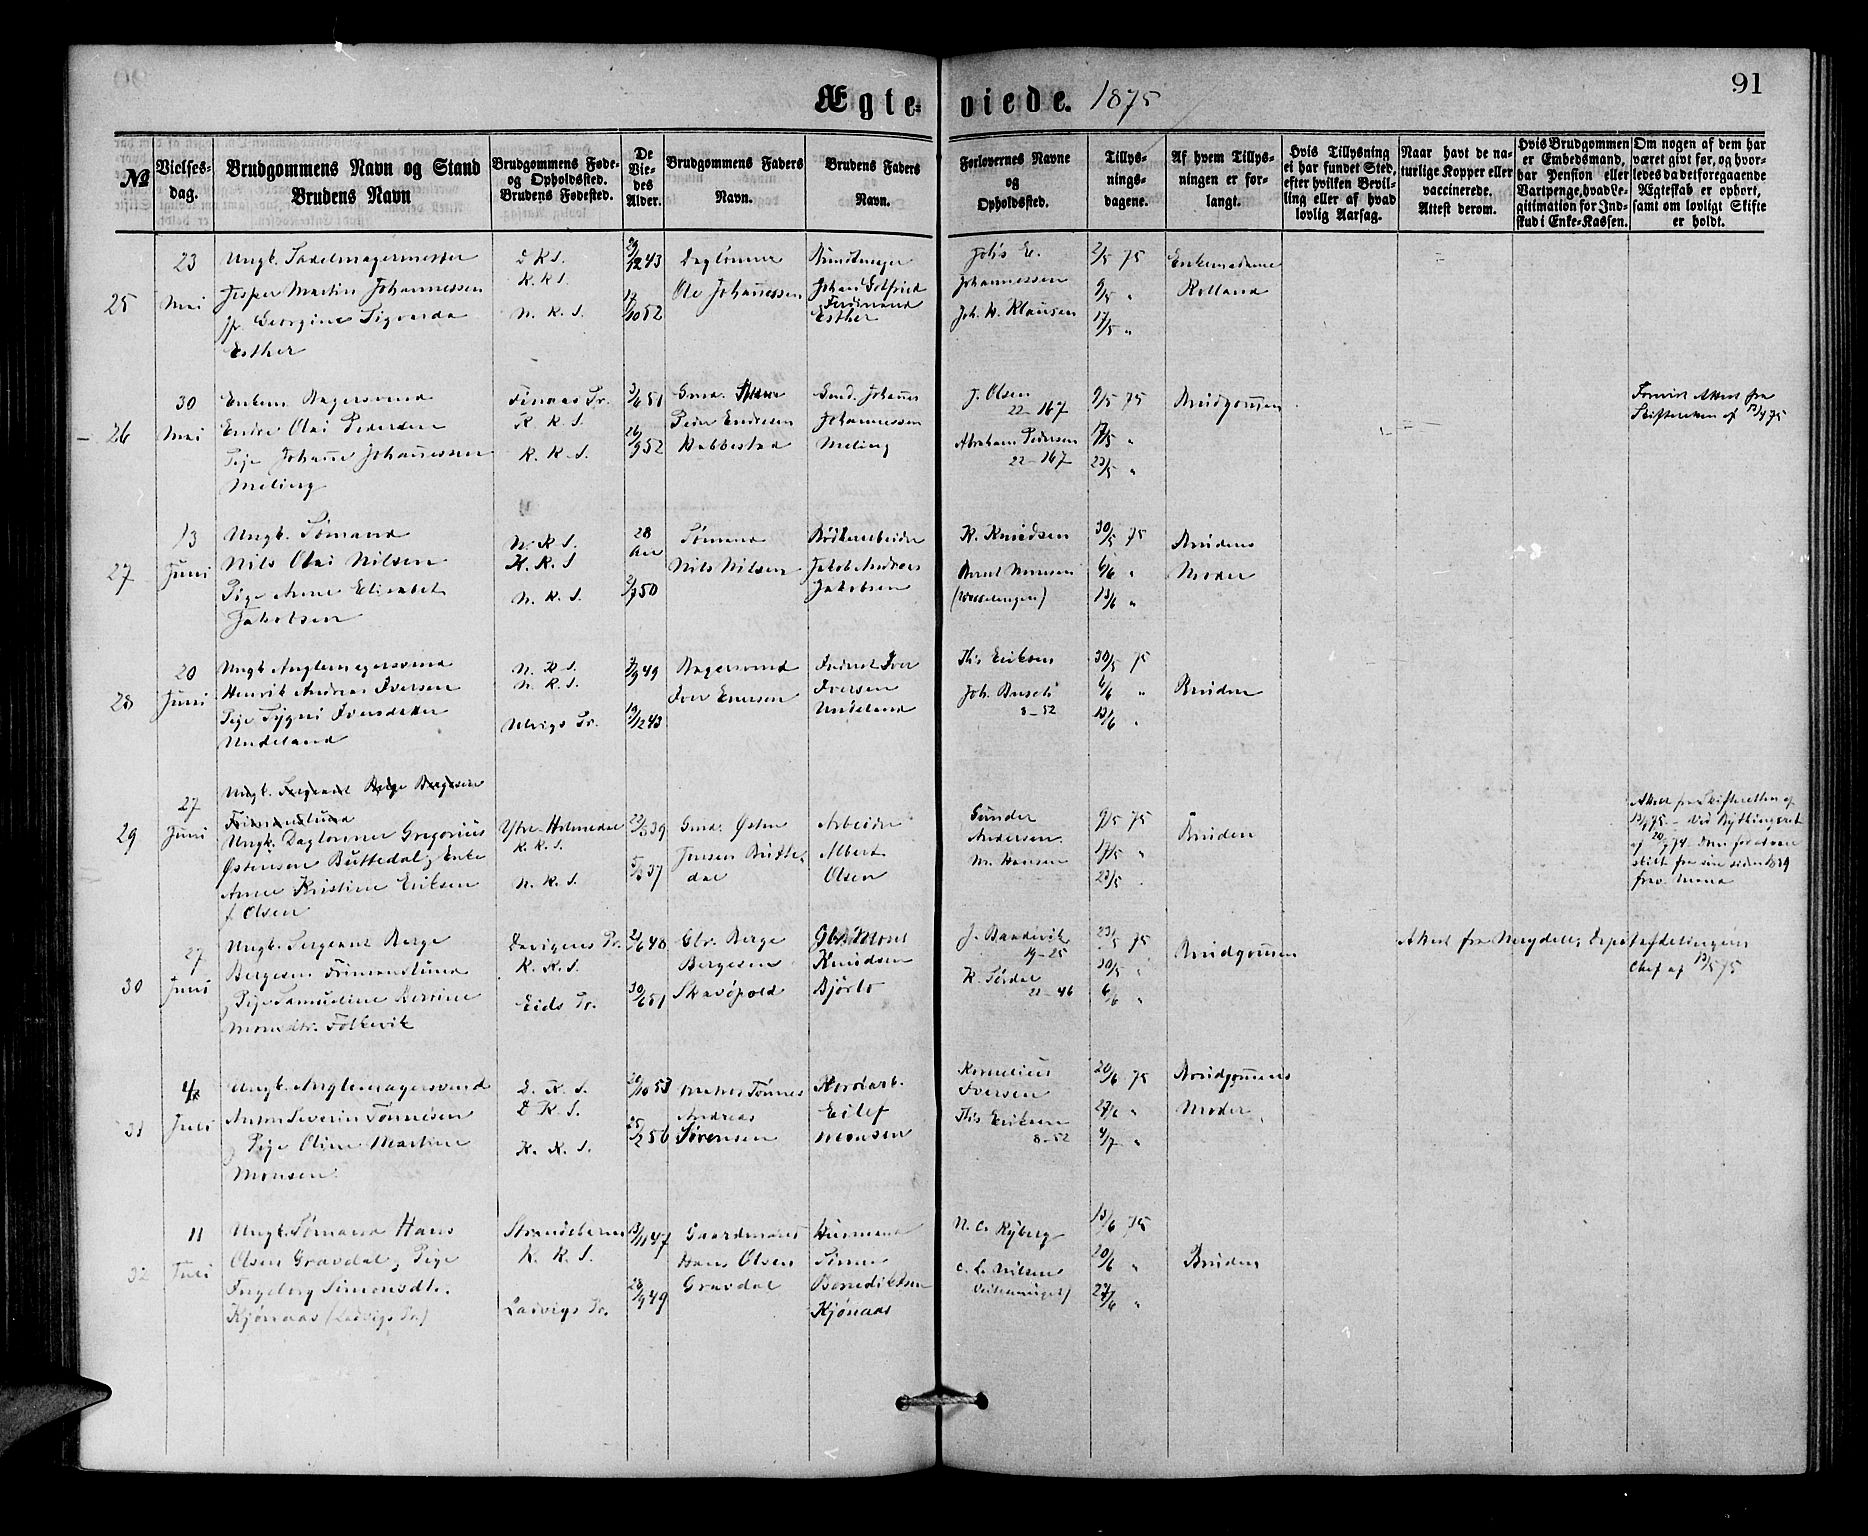 Ægteviede. 1875
91
№
Vielses-
dag.
Brudgommens Navn og Stand
Brudens Navn
Brudgommens Føde-
og Opholdssted.
Brudens Fødested.
De
Vie-
des
Alder.
Brudgommens Faders
Navn.
Brudens Faders
Navn.
Forlovernes Navne
og
Opholdssted.
Tillys-
nings-
dagene.
Af hvem Tillys-
ningen er for-
langt.
Hvis Tillysning
ei har fundet Sted,
efter hvilken Bevil-
ling eller af hvad
lovlig Aarsag.
Naar havt de na-
turlige Kopper eller
vaccinerede.
Attest derom.
Hvis Brudgommen
er Embedsmand,
har Pension eller
Vartpenge, hvad Le-
gitimation for Ind-
skud i Enke-Kassen.
Om nogen af dem har
været givt før, og hvor-
ledes da det foregaaende
Ægteskab er ophørt,
samt om lovligt Skifte
er holdt.
25
23
Mai
Ungk. Sadelmagermester
Jesper Martin Johannessen
p. Georgine Sigvarda
Esther
D. K. S.
K. K. S.
N. K. S.
29/12 43
17/10 52
Daglønner
Ole Johannessen
Johan Gotfried
Ferdinand
Esther
Johs E.
Johannessen
Joh. W. Klausen
2/5 75
9/5 "
17/5 "
Enkemadame
Rolland
26
30
Mai
Enkem. Bagersvend
Endre Olai Pedersen
Pige Johanne Johannessen
Meling
Finaas Pr.
K. K. S.
K. K. S.
3/6 51
26/9 52
Gmd.
Peder Endresen
Habbestad
Gmd. Johannes
Johannessen
Meling
J. Olsen
22-167
Abraham Pedersen
22-167
9/5 75
17/5 "
23/5 "
Brudgommen
Forevist Attest fra
Skifteretten af 13/4 75
27
13
Juni
Ungk. Sømand
Nils Olai Nilsen
Pige Anne Elisabet
Jakobsen
N. K. S.
K. K. S
N. K. S.
28
Aar
2/7 50
Sømand
Nils Nilsen
Bødkerarbeider
Jakob Andreas
Jakobsen
K. Knudsen
Bernt Monsen
30/5 75
6/6 "
13/6 "
Brudens
Moder
28
20
Juni
Ungk.
Henrik Andreas Iversen
Pige Sygni Iversdatter
Undeland
N. K. S.
N. K. S.
Ulvigs Pr.
7/9 49
19/12 43
Bagersvend
Iver Enersen
Iver
Iversen
Undeland
Ths Eriksen
Joh. Busch
8-52
30/5 75
6/6 "
13/6 "
Bruden
29
27
Juni
Ungk. Sergeant Berge Bergesen
Frimanslund
Ungk. Daglønner Gregorius
Østensen Buttedal, Enke
Anne Kristine Eriksen
f. Olsen
Ytre Holmedal
K. K. S.
N. K. S.
22/3 39
5/3 37
Gmd. Østen
Jensen Butte-
dal
Arbeider
Albert
Olsen
Gunder
Andersen
M. Hansen
9/5 75
17/5 "
23/5 .
Bruden
Attest fra Skifteretten af
30
27
Juni
Ungk. Sergeant Berge
Bergesen Frimanslund
Pige Samueline Berrine
Monsdtr. Folkevik
Davigens Pr.
K. K. S.
Eids Pr.
21/6 48
30/6 51
Gbr. Berge
Bergesen
Skavøpold
Gbr. Mons
Knudsen
Bjørlo
J. Sandvik
19-25
K. Sørdal
21-46
23/5 75
30/5 "
6/6 "
Brudgommen
Attest fra afdelingens
Chef af 13/5 75
31
4
Juli
Ungk.
Anton Severin Tønnesen
Pige Oline Martine
Monsen
D. K. S.
D. K. S.
K. K. S.
20/10 53
25/2 56
Tønnes
Andreas
Sørensen
Eilef
Monsen
Kornelius
Iversen
Ths Eriksen
8-52
20/6 75
27/6 "
4/7 "
Brudgommens
Moder
32
11
Juli
Ungk. Sømand Hans
Olsen Gravdal, Pige
Ingeborg Simonsdtr.
Kjønaas (Ladvigs Pr.)
Strandebarm
K. K. S.
Ladvigs Pr.
13/11 47
28/9 49
Gaardmand
Hans Olsen
Gravdal
Husmand
Simon
Benediktsen
Kjønaas
N. C. Ryberg
C. L. Nilsen
13/6 75
20/6 "
27/6 "
Bruden